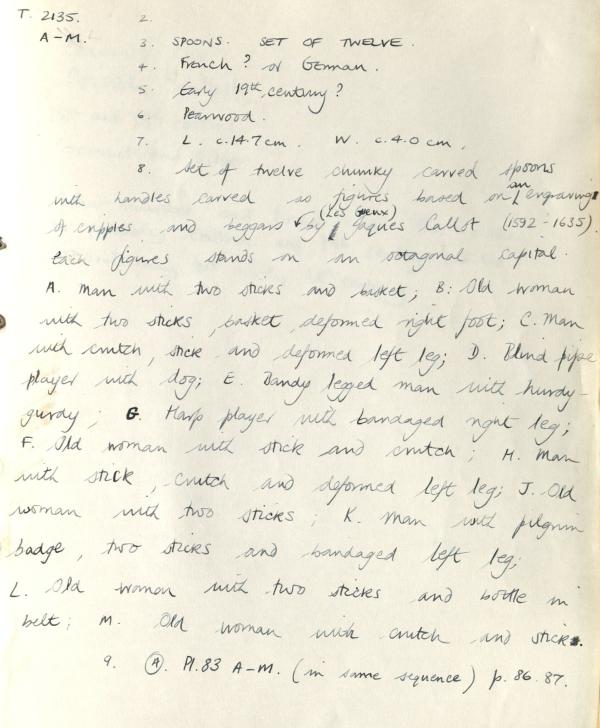 T. 2135. 2.
A-M. 3. SPOONS. SET OF TWELVE.
4. French? or German.
5. Early 19th century?
6. Pearwood.
7. L. c.14.7cm. W. c.4.0cm.
8. Set of twelve chunky carved spoons
with handles carved as figures based on an engraving
of cripples and beggars (Les Gueux) by Jaques Callot (1592-1635).
Each figures stands on an octagonal capital.
A. Man with two sticks and basket; B: Old woman
with two sticks, basket, deformed right foot; C. Man
with crutch, stick and deformed left leg; D. Blind pipe
player with dog; E. Bandy legged man with hurdy-
gurdy; G. Harp player with bandaged right leg;
F. Old woman with stick and crutch; H. Man
with stick, crutch and deformed left leg; J. Old
woman with two sticks; K. Man with pilgrim
badge, two sticks and bandaged left leg;
L. Old woman with two sticks and bottle in
belt; M. Old woman with crutch and stick.
9. (A). Pl.83 A-M. (in same sequence) p. 86.87.